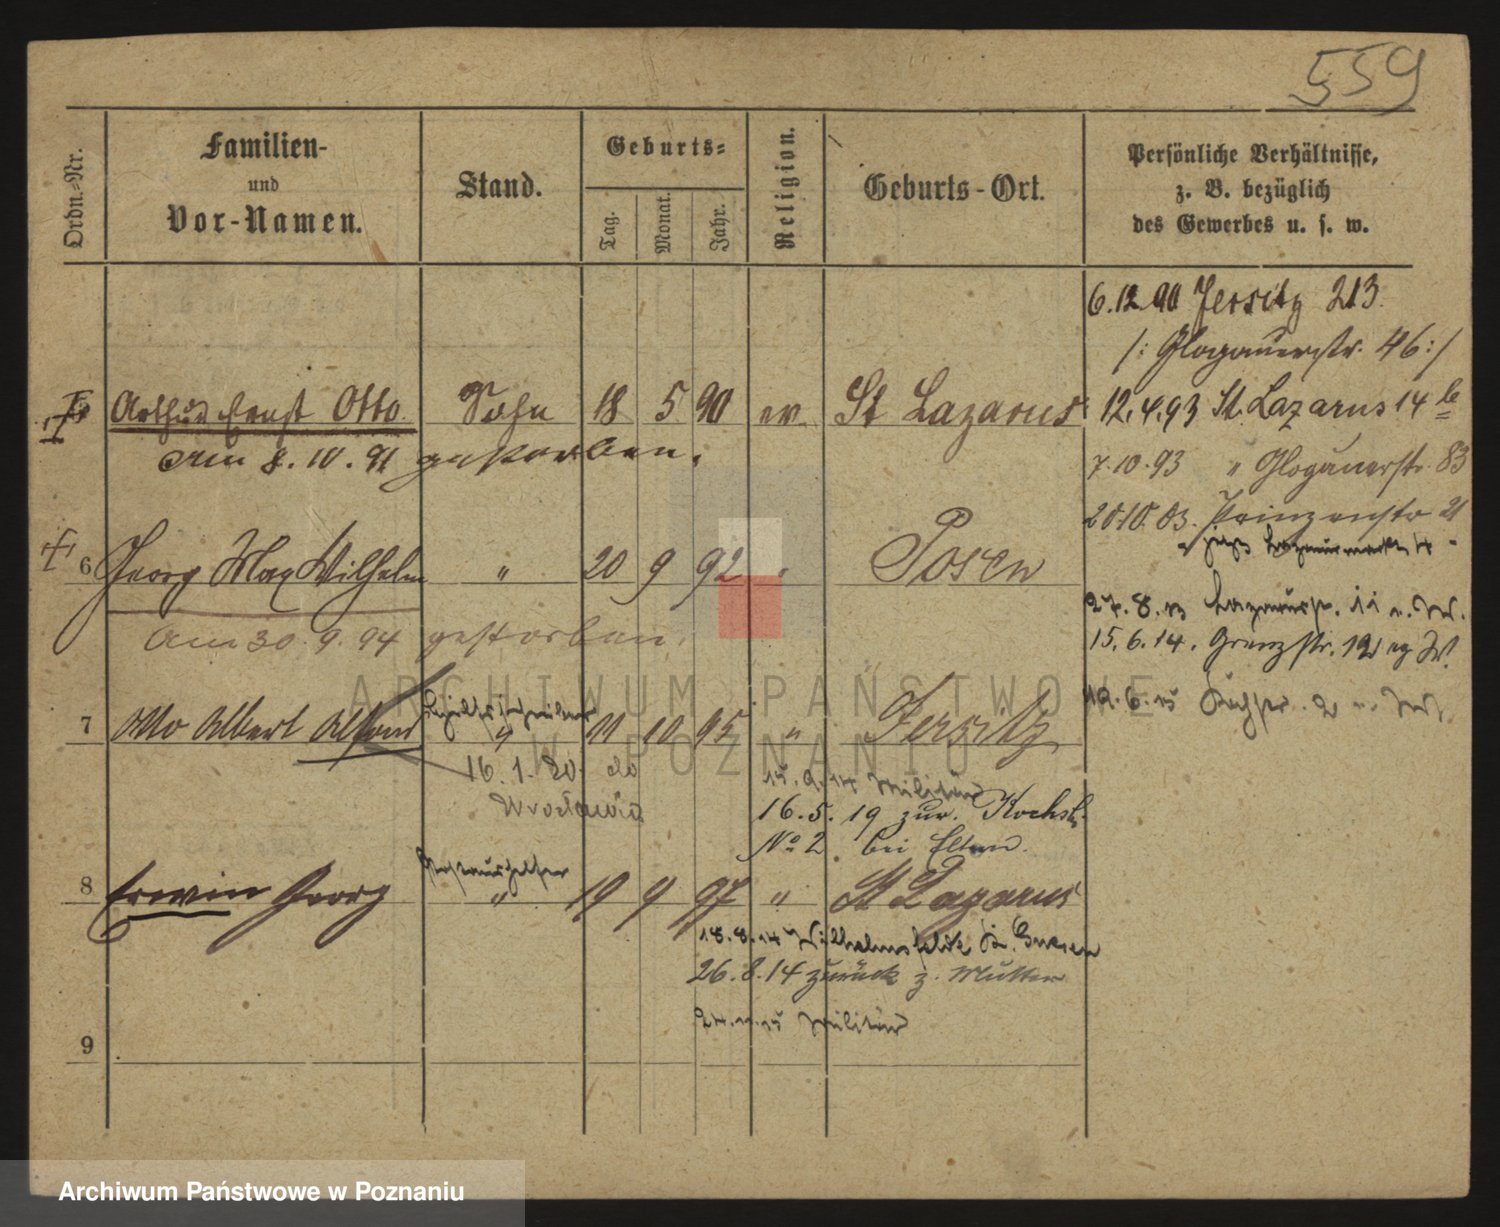 559
Ordn.-Nr.
Familien-
und
Vor-Namen.
Stand.
Geburts-
Tag.
Monat.
Jahr.
Religion.
Geburts-Ort.
Persönliche Verhältnisse,
z. B. bezüglich
des Gewerbes u. s. w.
6.12.90 Jersitz 213.
/: Glogauerstr. 46 :/
Arthur Ernst Otto Sohn 18 5 90 ev. St Lazarus
12.4.93 St. Lazarus 14 b
am 8.10.91 gestorben.
7.10.93 " Glogauerstr. 83
20.10.03. Prinzenstr 21
6 Georg Max Wilhelm " 20 9 92 " Posen
am 30.9.94 gestorben.
15.6.14. Grenzstr. 12
7 Otto Albert Alfons " 11 10 95 " Jersitz
16.1.20. do
Wrocławia
Militär
16.5.19 zur.
No 2 bei Eltern.
8 Erwin Georg " 19 9 97 " St Lazarus
18.8.14
26.8.14 zurück z. Mutter
Militär
9
ARCHIWUM PAŃSTWOWE
W POZNANIU
Archiwum Państwowe w Poznaniu